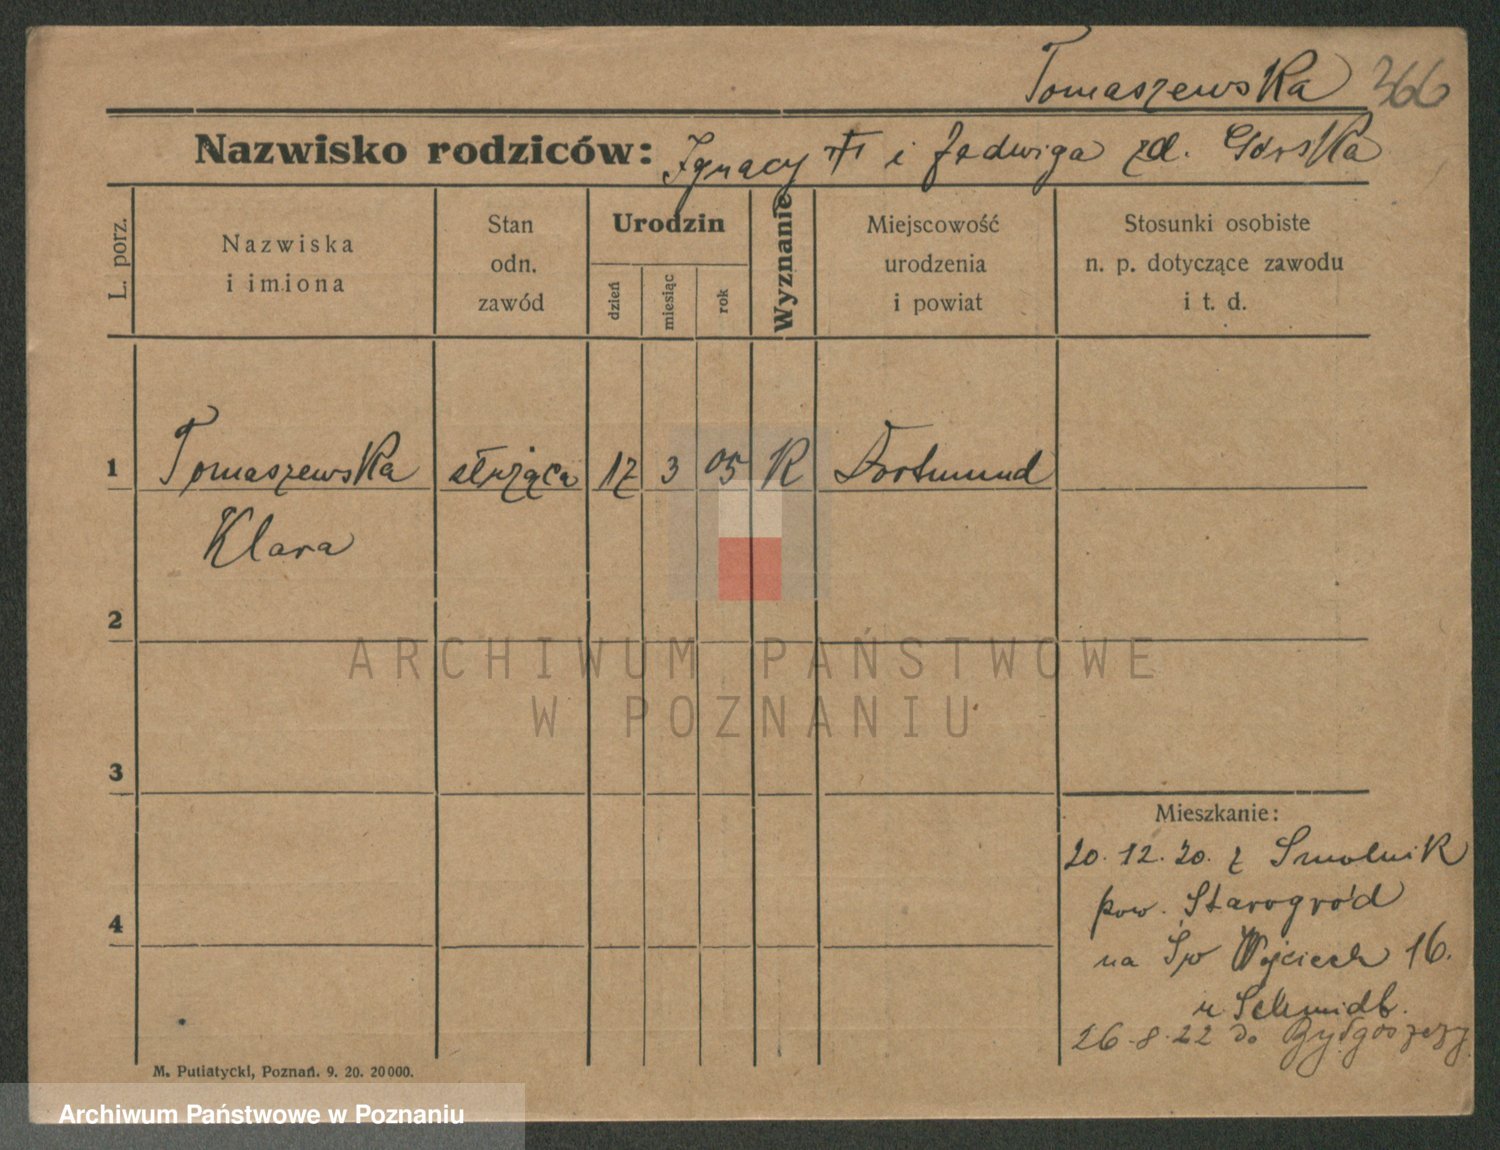 Tomaszewska 366
Nazwisko rodziców: Ignacy i Jedwiga zd. Górska
L. porz.
Nazwiska
i imiona
Stan
odn.
zawód
Urodzin
dzień
miesiąc
rok
Wyznanie
Miejscowość
urodzenia
i powiat
Stosunki osobiste
n. p. dotyczące zawodu
i t. d.
1 Tomaszewska służąca 17 3 05 K Dortmund
Klara
2
3
4
Mieszkanie:
20.12.20. z Smolnik
pow. Starogród
na Św Wojciech 16.
u Schmidt.
26.8.22 do Bydgoszczy
M. Putiatycki, Poznań. 9. 20. 20000.
ARCHIWUM PAŃSTWOWE
W POZNANIU
Archiwum Państwowe w Poznaniu